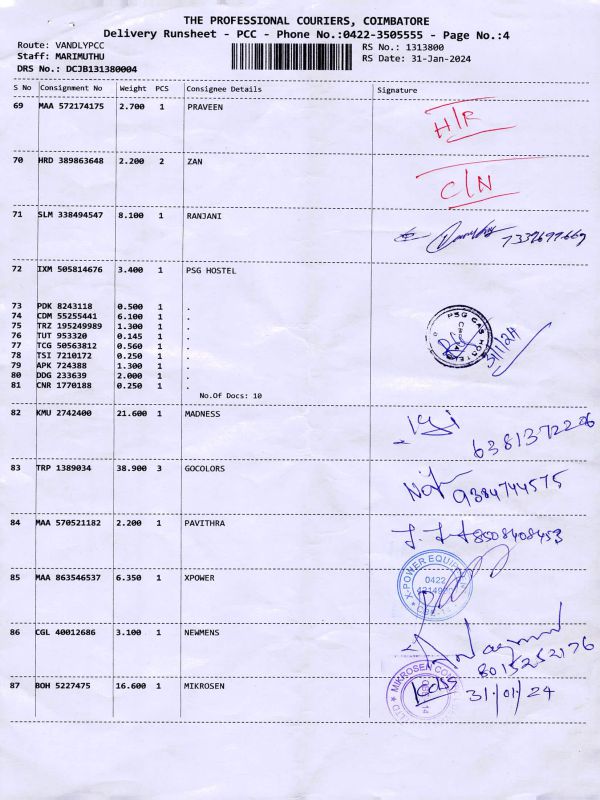 THE PROFESSIONAL COURIERS, COIMBATORE
Delivery Runsheet - PCC - Phone No.:0422-3505555 - Page No.:4
Route: VANDLYPCC
Staff: MARIMUTHU
DRS No.: DCJB131380004
RS No.: 1313800
RS Date: 31-Jan-2024
S No Consignment No Weight PCS Consignee Details Signature
69 MAA 572174175 2.700 1 PRAVEEN H/R
70 HRD 389863648 2.200 2 ZAN C/N
71 SLM 338494547 8.100 1 RANJANI
72 IXM 505814676 3.400 1 PSG HOSTEL
73 PDK 8243118 0.500 1 .
74 CDM 55255441 6.100 1 .
75 TRZ 195249989 1.300 1 .
76 TUT 953320 0.145 1 .
77 TCG 50563812 0.560 1 .
78 TSI 7210172 0.250 1 .
79 APK 724388 1.300 1 .
80 DDG 233639 2.000 1 .
81 CNR 1770188 0.250 1 .
31/1/24
No.Of Docs: 10
82 KMU 2742400 21.600 1 MADNESS
6381372206
83 TRP 1389034 38.900 3 GOCOLORS
9384744575
84 MAA 570521182 2.200 1 PAVITHRA
8508408453
85 MAA 863546537 6.350 1 XPOWER
X-POWER EQUIP
0422
86 CGL 40012686 3.100 1 NEWMENS
8015252176
87 BOH 5227475 16.600 1 MIKROSEN
MIKROSEN
31/01/24